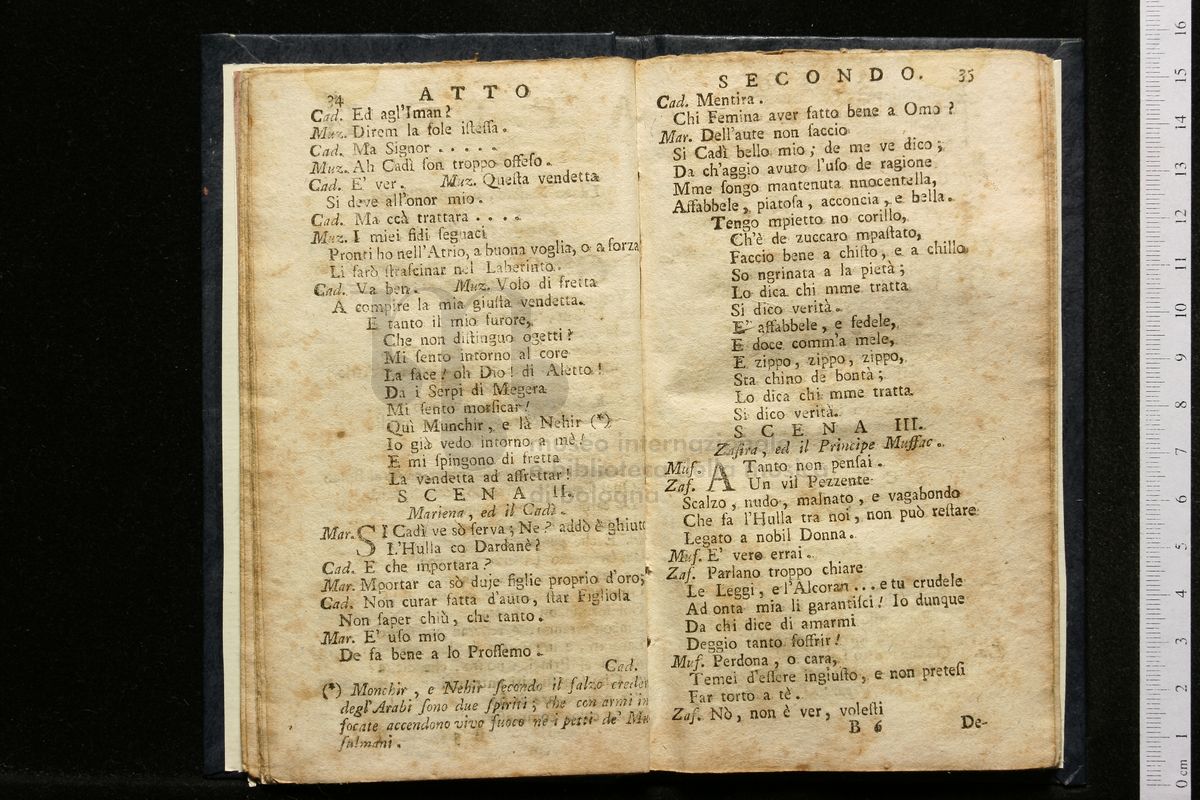 34
ATTO
Cad. Ed agl'Iman?
Muz. Direm la fole iſteſſa.
Cad. Ma Signor . . . . .
Muz. Ah Cadì ſon troppo offeſo.
Cad. E' ver. Muz. Queſta vendetta
Si deve all'onor mio.
Cad. Ma ccà trattara . . . .
Muz. I miei fidi ſeguaci
Pronti ho nell'Atrio, a buona voglia, o a forza
Li farò ſtraſcinar nel Laberinto.
Cad. Va ben. Muz. Volo di fretta
A compire la mia giuſta vendetta.
E tanto il mio furore,
Che non diſtinguo ogetti?
Mi ſento intorno al core
La face! oh Dio! di Aletto!
Da i Serpi di Megera
Mi ſento morſicar!
Quì Munchir, e là Nehir (*)
Io già vedo intorno a mè!
E mi ſpingono di fretta
La vendetta ad affrettar!
SCENA II.
Mariena, ed il Cadì.
Mar. SI Cadì ve sò ſerva; Ne? addò è ghiuto
L'Hulla co Dardanè?
Cad. E che mportara?
Mar. Mportar ca sò duje figlie proprio d'oro;
Cad. Non curar fatta d'auto, ſtar Figliola
Non ſaper chiù, che tanto.
Mar. E' uſo mio
De fa bene a lo Proſſemo.
Cad.
(*) Monchir, e Nehir ſecondo il falzo creder
degl'Arabi ſono due ſpiriti; che con armi in
focate accendono vivo fuoco ne i petti de' Mu
ſulmani.
SECONDO. 35
Cad. Mentira.
Chi Femina aver fatto bene a Omo?
Mar. Dell'aute non ſaccio
Si Cadì bello mio; de me ve dico;
Da ch'aggio avuto l'uſo de ragione
Mme ſongo mantenuta nnocentella,
Affabbele, piatoſa, acconcia, e bella.
Tengo mpietto no corillo,
Ch'è de zuccaro mpaſtato,
Faccio bene a chiſto, e a chillo
So ngrinata a la pietà;
Lo dica chi mme tratta
Si dico verità.
E' affabbele, e fedele,
E doce comm'a mele,
E zippo, zippo, zippo,
Sta chino de bontà;
Lo dica chi mme tratta
Si dico verità.
SCENA III.
Zafira, ed il Principe Muffac.
Muf. A Tanto non penſai.
Zaf. Un vil Pezzente
Scalzo, nudo, malnato, e vagabondo
Che fa l'Hulla tra noi, non può reſtare
Legato a nobil Donna.
Muf. E' vero errai.
Zaf. Parlano troppo chiare
Le Leggi, e l'Alcoran . . . . e tu crudele
Ad onta mia li garantiſci! Io dunque
Da chi dice di amarmi
Deggio tanto ſoffrir!
Muf. Perdona, o cara,
Temei d'eſſere ingiuſto, e non preteſi
Far torto a tè.
Zaf. Nò, non è ver, voleſti
B 6 De-
museo internazionale
e biblioteca della musica
di bologna
16
15
14
13
12
11
10
9
8
7
6
5
4
3
2
1
0 cm